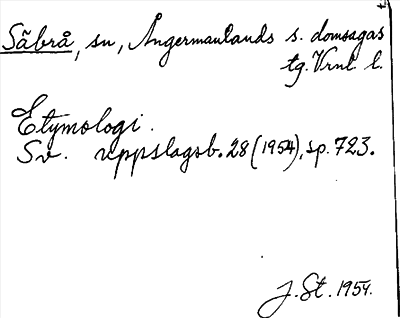 Säbrå, sn, Ångermanlands s. domsagas
tg. Vrnl l.
Etymologi.
Sv. uppslagsb. 28 (1954), sp. 723.
J. St. 1954.